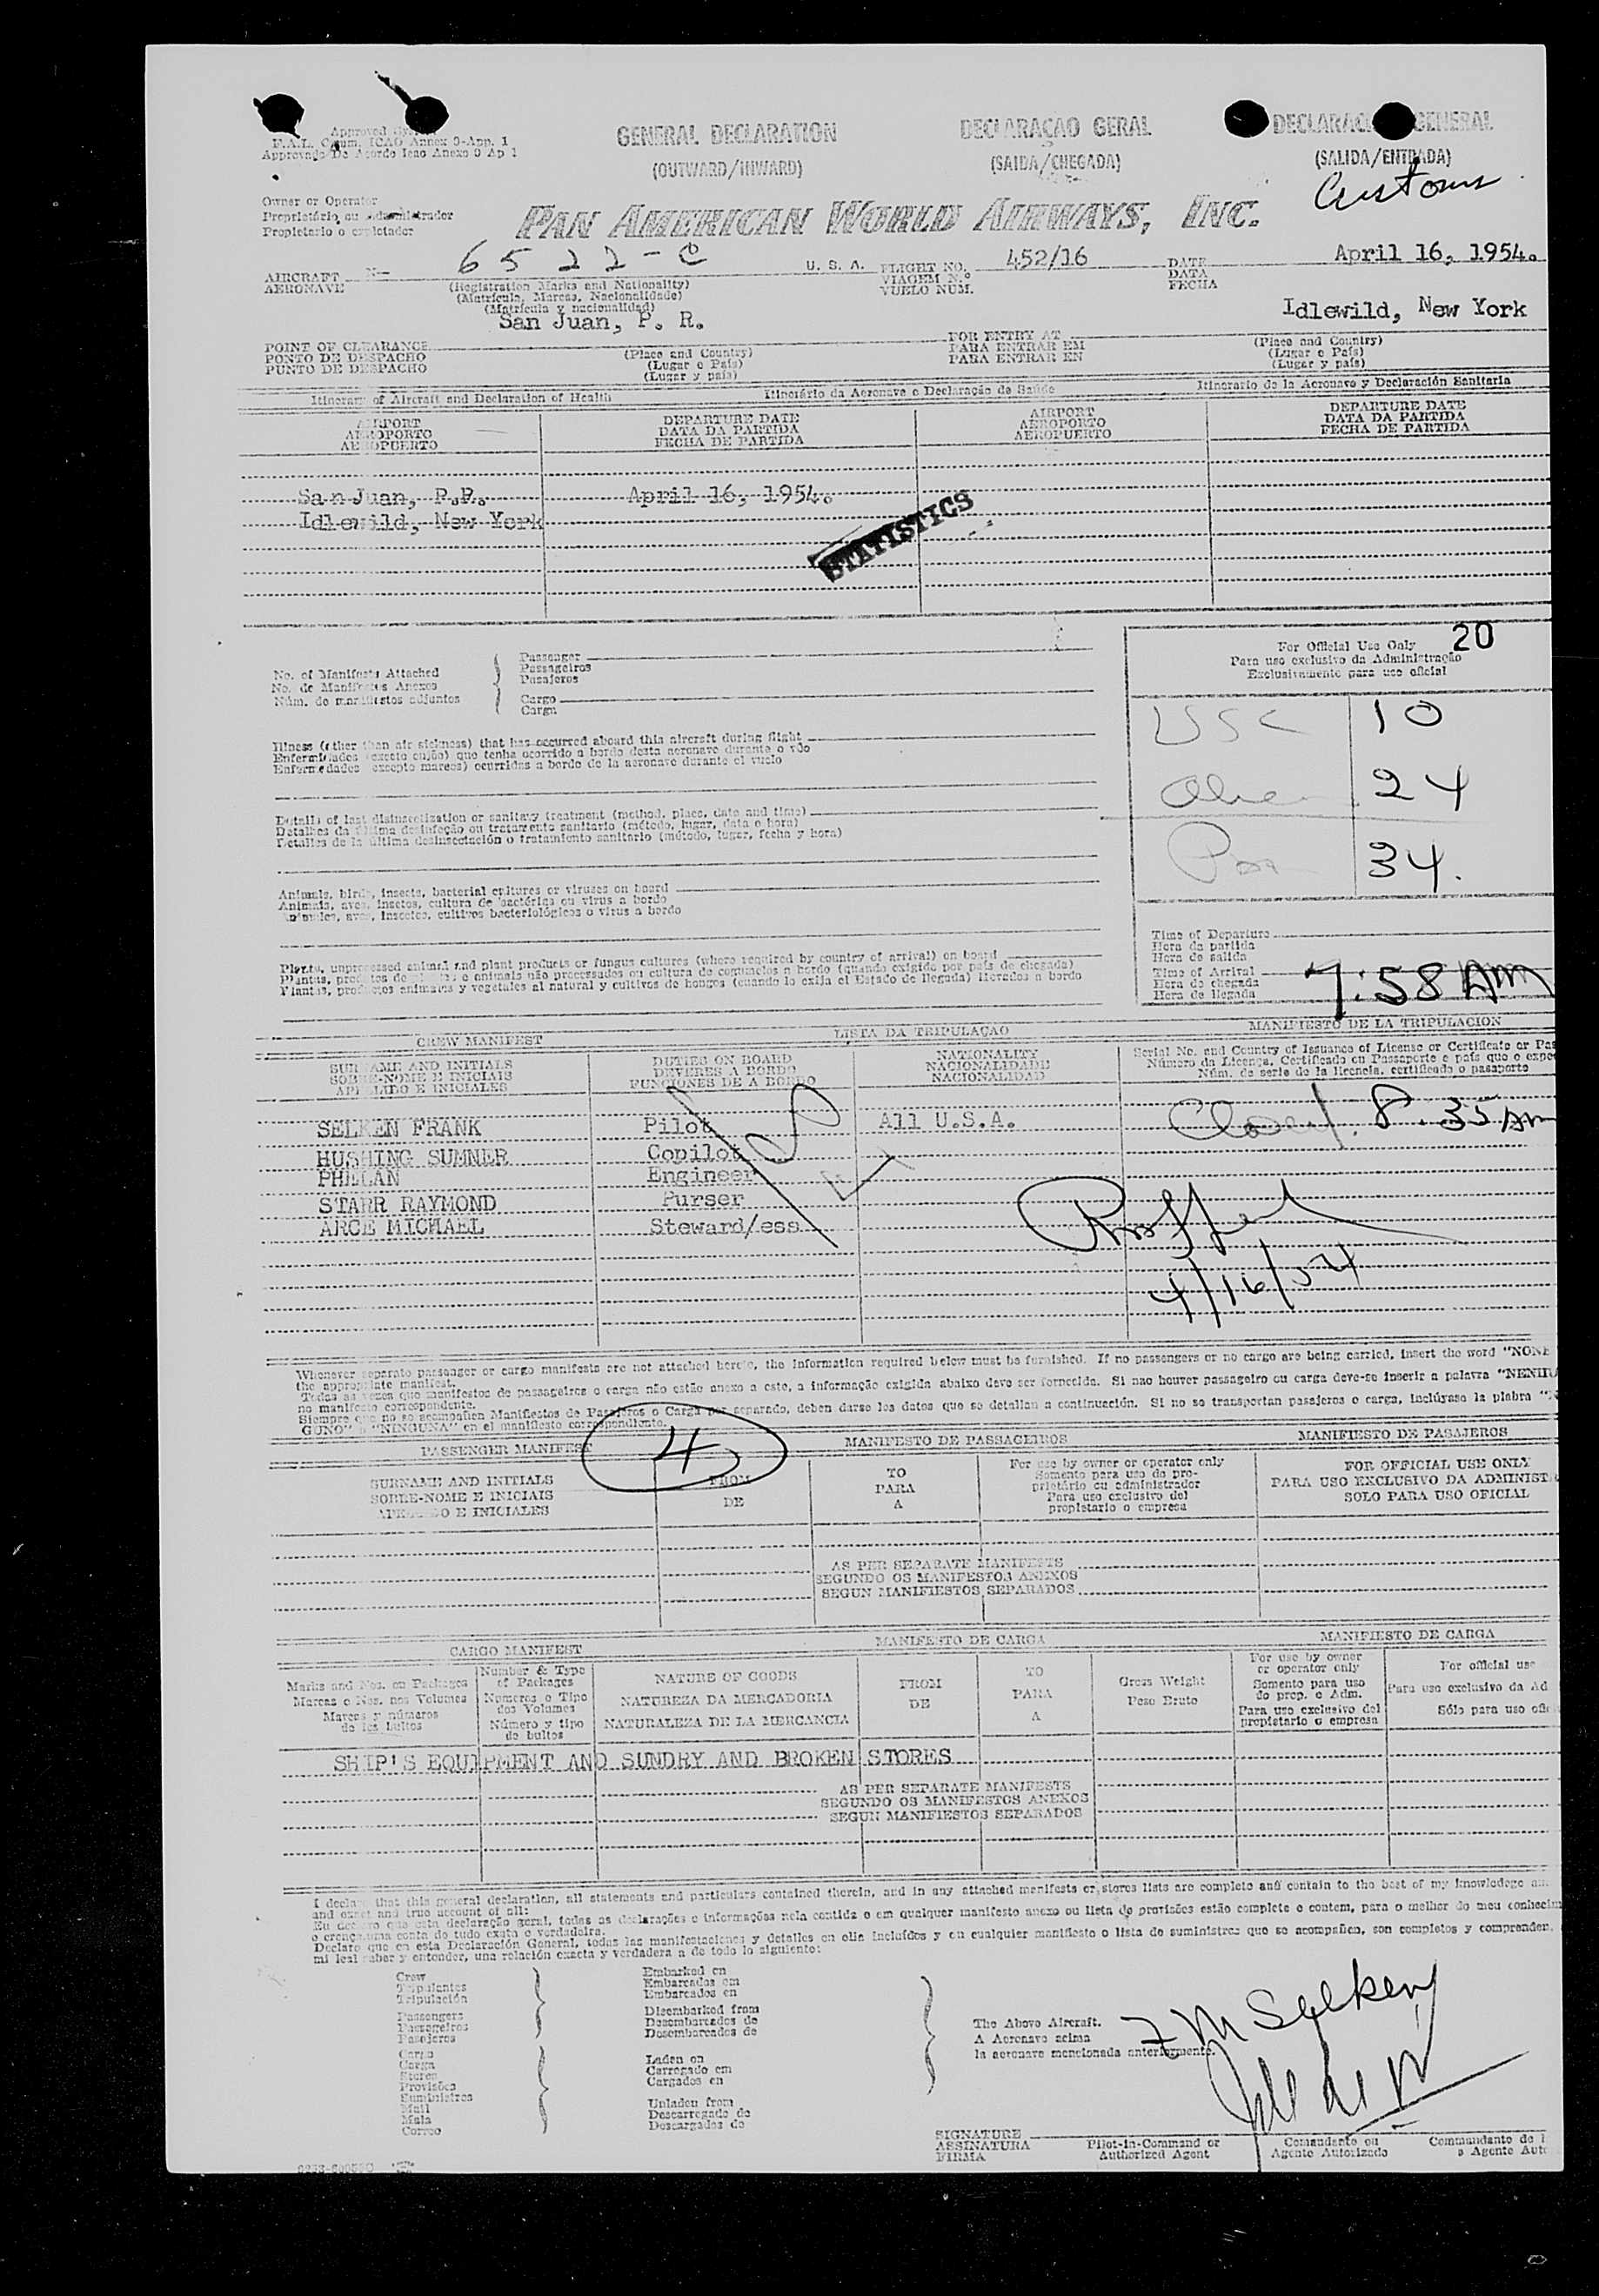 GENERAL DECLARATION
(OUTWARD/INWARD)
DECLARAÇAO GERAL
(SAIDA/CHEGADA)
(SALIDA/ENTRADA)
Customs
Approved
F.A.L. Comm. ICAO Annex 9-App. 1
Approvado De Acordo Icao Anexo 9 Ap 1
Owner or Operator
Proprietário ou Administrador
Propietario o explotador
PAN AMERICAN WORLD AIRWAYS, INC.
AIRCRAFT N- 6522-C U. S. A. FLIGHT NO. 452/16 DATE April 16, 1954.
AERONAVE VIAGEM N.º DATA
VUELO NUM. FECHA
(Registration Marks and Nationality)
(Matrícula, Marcas, Nacionalidade)
(Matrícula y nacionalidad)
San Juan, P. R. Idlewild, New York
POINT OF CLEARANCE FOR ENTRY AT
PONTO DE DESPACHO PARA ENTRAR EM
PUNTO DE DESPACHO PARA ENTRAR EN
(Place and Country) (Place and Country)
(Lugar e País) (Lugar e País)
(Lugar y país) (Lugar y país)
Itinerary of Aircraft and Declaration of Health Itinerário da Aeronave e Declaração de Saúde Itinerario de la Aeronave y Declaración Sanitaria
AIRPORT DEPARTURE DATE AIRPORT DEPARTURE DATE
AEROPORTO DATA DA PARTIDA AEROPORTO DATA DA PARTIDA
AEROPUERTO FECHA DE PARTIDA AEROPUERTO FECHA DE PARTIDA
San Juan, P.R. April 16, 1954.
Idlewild, New York
STATISTICS
No. of Manifests Attached
No. de Manifestos Anexos
Núm. de manifiestos adjuntos
Passenger
Passageiros
Pasajeros
Cargo
Carga
For Official Use Only 20
Para uso exclusivo da Administração
Exclusivamente para uso oficial
USC 10
Alien 24
Pax 34.
Illness (other than air sickness) that has occurred aboard this aircraft during flight
Enfermidades (exceto enjôo) que tenha ocorrido a bordo desta aeronave durante o vôo
Enfermedades (excepto mareos) ocurridas a bordo de la aeronave durante el vuelo
Details of last disinsectization or sanitary treatment (method, place, date and time)
Detalhes da última desinfeção ou tratamento sanitario (método, lugar, data e hora)
Detalles de la última desinsectación o tratamiento sanitario (método, lugar, fecha y hora)
Animals, birds, insects, bacterial cultures or viruses on board
Animais, aves, insetos, cultura de bactérias ou virus a bordo
Animales, aves, insectos, cultivos bacteriológicos o virus a bordo
Plants, unprocessed animal and plant products or fungus cultures (where required by country of arrival) on board
Plantas, productos animales y vegetales al natural y cultivos de hongos (cuando lo exija el Estado de llegada) llevados a bordo
Time of Departure
Hora da partida
Hora de salida
Time of Arrival 7:58 AM
Hora de chegada
Hora de llegada
CREW MANIFEST LISTA DA TRIPULAÇAO MANIFIESTO DE LA TRIPULACION
SURNAME AND INITIALS DUTIES ON BOARD NATIONALITY Serial No. and Country of Issuance of License or Certificate or Pas
SOBRE-NOME E INICIAIS DEVERES A BORDO NACIONALIDADE Número da Licença, Certificado ou Passaporte e país que o expe
APELLIDO E INICIALES FUNCIONES DE A BORDO NACIONALIDAD Núm. de serie de la licencia, certificado o pasaporte
SELKEN FRANK Pilot All U.S.A. Closed 8.35 Am
HUSHING SUMNER Copilot
PHELAN Engineer
STARR RAYMOND Purser
ARCE MICHAEL Steward/ess
4/16/54
Whenever separate passenger or cargo manifests are not attached hereto, the information required below must be furnished. If no passengers or no cargo are being carried, insert the word "NONE
the appropriate manifest.
Todas as vezes que manifestos de passageiros o carga não estão anexo a este, a informação exigida abaixo deve ser fornecida. Si nao houver passageiro ou carga deve-se inserir a palavra "NENHU
no manifesto correspondente.
Siempre que no se acompañen Manifiestos de Pasajeros o Carga por separado, deben darse los datos que se detallan a continuación. Si no se transportan pasajeros o carga, inclúyase la plabra "N
GUNO" o "NINGUNA" en el manifiesto correspondiente.
4
PASSENGER MANIFEST MANIFESTO DE PASSAGEIROS MANIFIESTO DE PASAJEROS
SURNAME AND INITIALS FROM TO For use by owner or operator only FOR OFFICIAL USE ONLY
SOBRE-NOME E INICIAIS DE PARA Somente para uso do proprietário ou administrador PARA USO EXCLUSIVO DA ADMINIST
APELLIDO E INICIALES A Para uso exclusivo del propietario o empresa SOLO PARA USO OFICIAL
AS PER SEPARATE MANIFESTS
SEGUNDO OS MANIFESTOS ANEXOS
SEGUN MANIFIESTOS SEPARADOS
CARGO MANIFEST MANIFESTO DE CARGA MANIFIESTO DE CARGA
Marks and Nos. on Packages Number & Type of Packages NATURE OF GOODS FROM TO Gross Weight For use by owner or operator only For official use
Marcas e Nos. nos Volumes Numeros e Tipo dos Volumes NATUREZA DA MERCADORIA DE PARA Peso Bruto Somente para uso do prop. e Adm. Para uso exclusivo da Ad
Marcas y números de los bultos Número y tipo de bultos NATURALEZA DE LA MERCANCIA A Para uso exclusivo del propietario o empresa Sólo para uso ofic
SHIP'S EQUIPMENT AND SUNDRY AND BROKEN STORES
AS PER SEPARATE MANIFESTS
SEGUNDO OS MANIFESTOS ANEXOS
SEGUN MANIFIESTOS SEPARADOS
I declare that this general declaration, all statements and particulars contained therein, and in any attached manifests or stores lists are complete and contain to the best of my knowledege an
and exact and true account of all:
Eu declaro que esta declaração geral, todas as declarações e informações nela contida o em qualquer manifesto anexo ou lista de provisões estão complete e contem, para o melhor do meu conhecim
e crença,uma conta de tudo exata e verdadeira.
Declaro que en esta Declaración General, todas las manifestaciones y detalles en ella incluídos y en cualquier manifiesto o lista de suministros que se acompañen, son completos y comprenden,
mi leal saber y entender, una relación exacta y verdadera a de todo lo siguiente:
Crew
Tripulantes
Tripulación
Passengers
Passageiros
Pasajeros
Cargo
Carga
Stores
Provisões
Suministros
Mail
Mala
Correo
Embarked on
Embarcados em
Embarcados en
Disembarked from
Desembarcados de
Desembarcados de
Laden on
Carregado em
Cargados en
Unladen from
Descarregado de
Descargados de
The Above Aircraft.
A Aeronave acima
la aeronave mencionada anteriormente.
SIGNATURE
ASSINATURA
FIRMA
Pilot-in-Command or
Authorized Agent
Comandante ou
Agente Autorizado
Commandante de
o Agente Auto